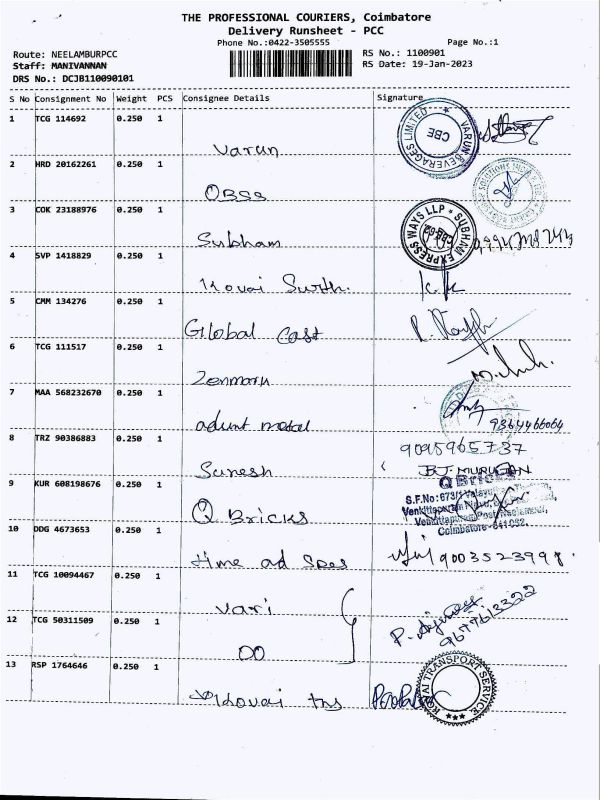 THE PROFESSIONAL COURIERS, Coimbatore
Delivery Runsheet - PCC
Phone No.:0422-3505555 Page No.:1
Route: NEELAMBURPCC RS No.: 1100901
Staff: MANIVANNAN RS Date: 19-Jan-2023
DRS No.: DCJB110090101
S No Consignment No Weight PCS Consignee Details Signature
1 TCG 114692 0.250 1 Varun
VARUN BEVERAGES LIMITED CBE
2 HRD 20162261 0.250 1
3 COK 23188976 0.250 1 Subham
SUBHAM EXPRESS WAYS LLP
4 SVP 1418829 0.250 1 Kovai
5 CMM 134276 0.250 1 Global Cast
6 TCG 111517 0.250 1 Zenmark
7 MAA 568232670 0.250 1 metal
8 TRZ 90386883 0.250 1 Suresh
9095965737
B.T. MURUGAN
9 KUR 608198676 0.250 1 Q Bricks
Q Bricks
S.F.No: 673/1
Coimbatore - 641 062.
10 DDG 4673653 0.250 1 time ad
9003523998
11 TCG 10094467 0.250 1 Vari
12 TCG 50311509 0.250 1 DO
9677613322
13 RSP 1764646 0.250 1 Kovai
KOVAI TRANSPORT SERVICE